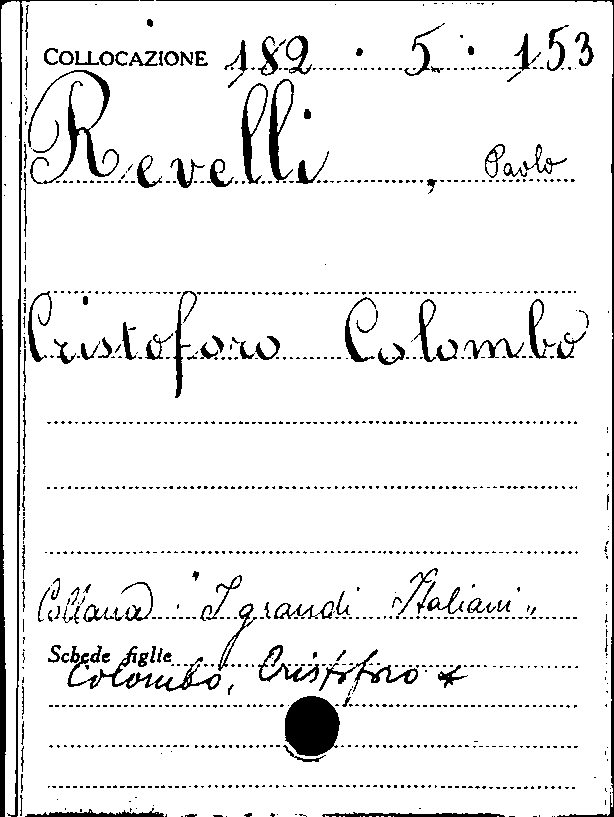 COLLOCAZIONE 182 . 5 . 153
Revelli , Paolo
Cristoforo Colombo
Collana : "I grandi Italiani"
Schede figlie
Colombo, Cristoforo *